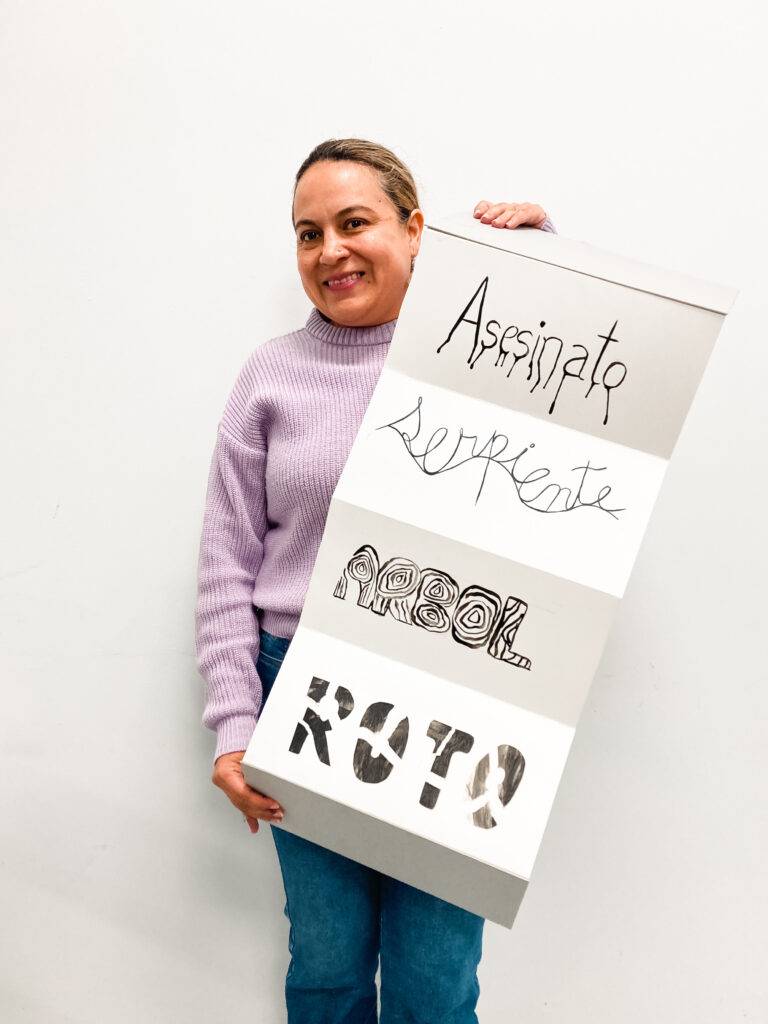 Asesinato
serpiente
ARBOL
ROTO